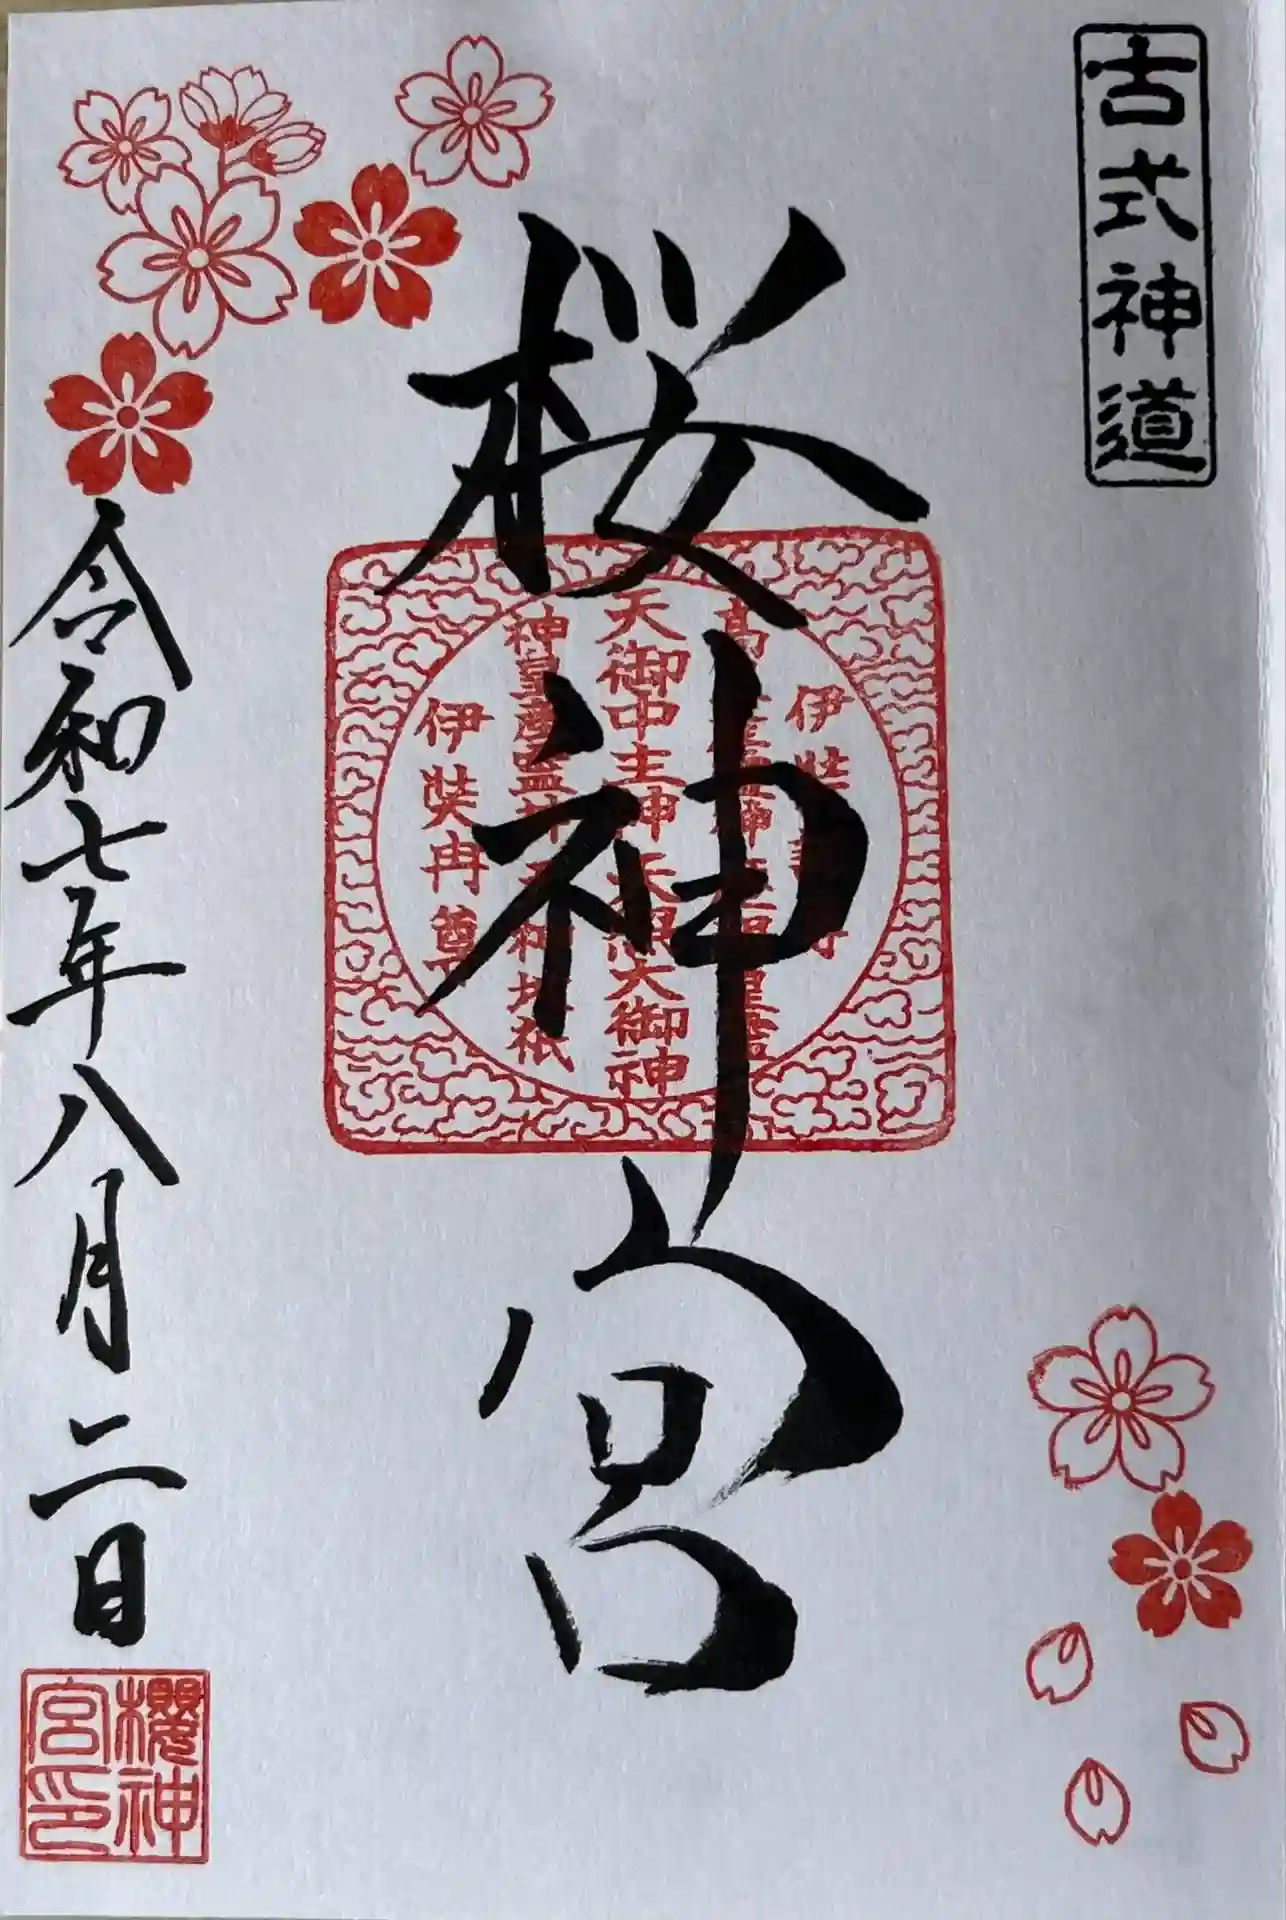 古式神道
桜神宮
伊弉
高
天御中主神天照大御神
神皇産霊神天神地祇
伊弉冉尊
令和七年八月二日
櫻神
宮印